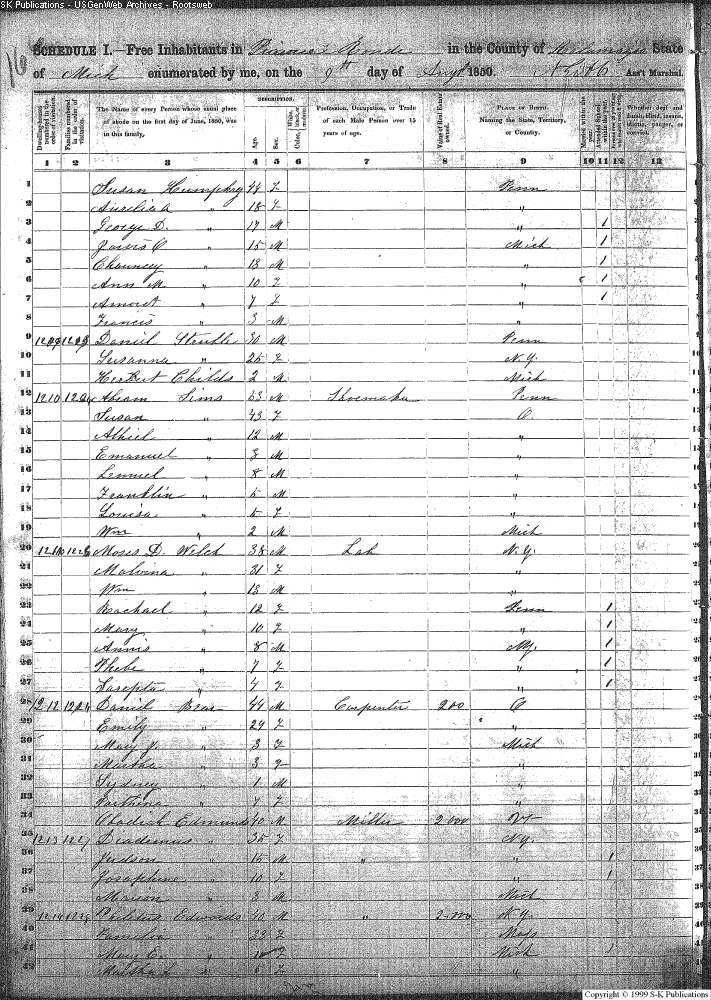 SK Publications - USGenWeb Archives - Rootsweb
SCHEDULE I.—Free Inhabitants in Prairie Ronde in the County of Kalamazoo State
of Mich enumerated by me, on the 9th day of Augt 1850. Ass't Marshal.
Dwelling-houses numbered in the order of visitation.
Families numbered in the order of visitation.
The Name of every Person whose usual place of abode on the first day of June, 1850, was in this family.
DESCRIPTION.
Age.
Sex.
Color, White, black, or mulatto.
Profession, Occupation, or Trade of each Male Person over 15 years of age.
Value of Real Estate owned.
PLACE OF BIRTH
Naming the State, Territory, or Country.
Married within the year.
Attended School within the year.
Whether deaf and dumb, blind, insane, idiotic, pauper, or convict.
1 2 3 4 5 6 7 8 9 10 11 12 13
1 Susan Humphry 44 F Penn
2 Aurelia A " 18 F "
3 George D. " 17 M " 1
4 Jarvis C " 15 M Mich 1
5 Chauncey " 13 M " 1
6 Ann M " 10 F " 1
7 " 7 F " 1
8 Francis " 3 M "
9 Daniel Struble 30 M Penn
10 Susanna " 25 F N.Y.
11 Herbert Childs 2 M Mich
12 1210 Abram Sims 53 M Shoemaker Penn
13 Susan " 43 F O.
14 Athiel " 12 M "
15 Emanuel " M "
16 Lemuel " 8 M "
17 Franklin " 5 M "
18 Louisa " 5 F "
19 Wm " 2 M Mich
20 Moses D. Welch 38 M Lab N.Y.
21 Malvina " 31 F "
22 Wm " 13 M "
23 Rachael " 12 F Penn 1
24 Mary " 10 F " 1
25 Annis " 8 M N.Y. 1
26 Phebe " 7 F " 1
27 Sarepta " 4 F " 1
28 1212 Daniel 44 M Carpenter 200 O
29 Emily " 24 F "
30 Mary J. " 3 F Mich
31 Martha " 3 F "
32 Sydney " 1 M "
33 Parthena " 7 F "
34 Edmunds 40 M Miller 2000 Vt
35 1213 1227 " 35 F N.Y.
36 Judson " 15 M " " 1
37 Josephine " 10 F " 1
38 Marion " 3 M Mich
39 1214 Edwards 40 M " 2000 N.Y.
40 Pamelia " 33 F Mass
41 Mary E. " F Mich 1
42 Martha " 6 F "
Copyright © 1999 S-K Publications